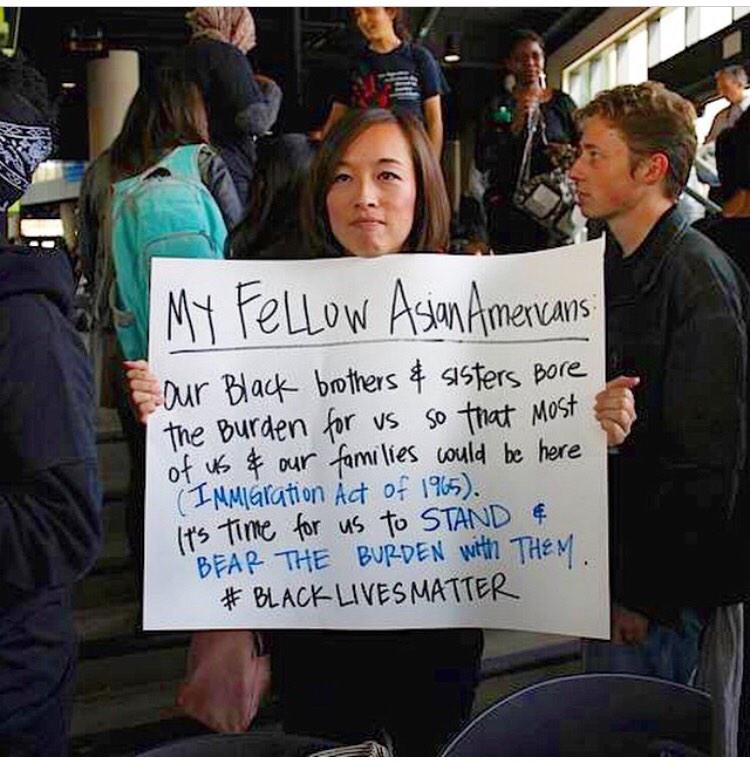 MY FELLOW Asian Americans:
Our Black brothers & sisters Bore
the Burden for us so that Most
of us & our families could be here
(IMMIGration Act of 1965).
It's time for us to STAND &
BEAR THE BURDEN with THEM.
# BLACKLIVESMATTER